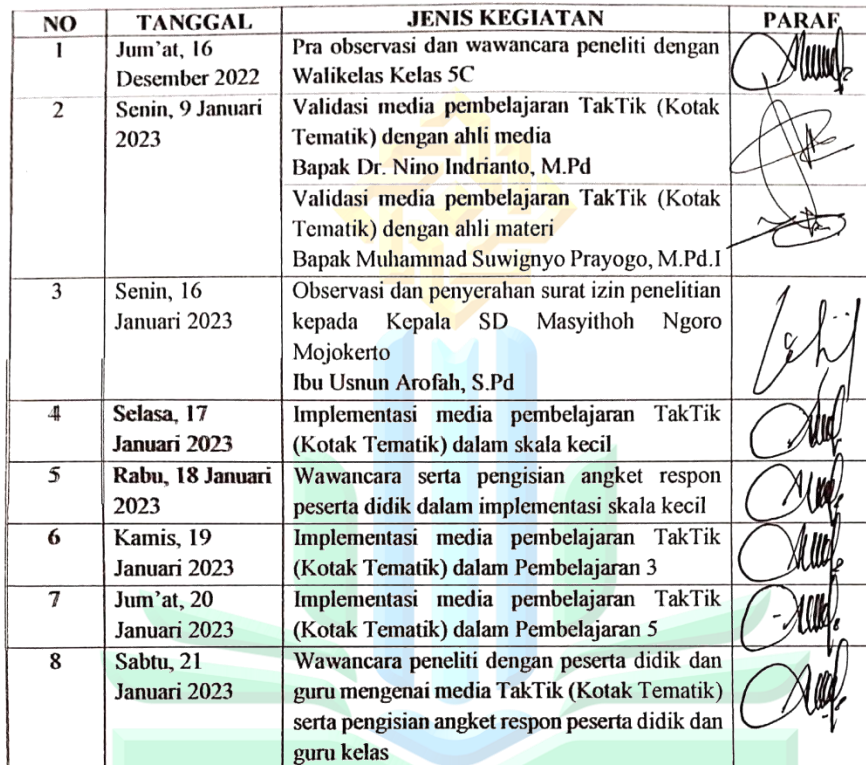 NO TANGGAL JENIS KEGIATAN PARAF
1 Jum'at, 16 Pra observasi dan wawancara peneliti dengan
Desember 2022 Walikelas Kelas 5C
2 Senin, 9 Januari Validasi media pembelajaran TakTik (Kotak
2023 Tematik) dengan ahli media
Bapak Dr. Nino Indrianto, M.Pd
Validasi media pembelajaran TakTik (Kotak
Tematik) dengan ahli materi
Bapak Muhammad Suwignyo Prayogo, M.Pd.I
3 Senin, 16 Observasi dan penyerahan surat izin penelitian
Januari 2023 kepada Kepala SD Masyithoh Ngoro
Mojokerto
Ibu Usnun Arofah, S.Pd
4 Selasa, 17 Implementasi media pembelajaran TakTik
Januari 2023 (Kotak Tematik) dalam skala kecil
5 Rabu, 18 Januari Wawancara serta pengisian angket respon
2023 peserta didik dalam implementasi skala kecil
6 Kamis, 19 Implementasi media pembelajaran TakTik
Januari 2023 (Kotak Tematik) dalam Pembelajaran 3
7 Jum'at, 20 Implementasi media pembelajaran TakTik
Januari 2023 (Kotak Tematik) dalam Pembelajaran 5
8 Sabtu, 21 Wawancara peneliti dengan peserta didik dan
Januari 2023 guru mengenai media TakTik (Kotak Tematik)
serta pengisian angket respon peserta didik dan
guru kelas